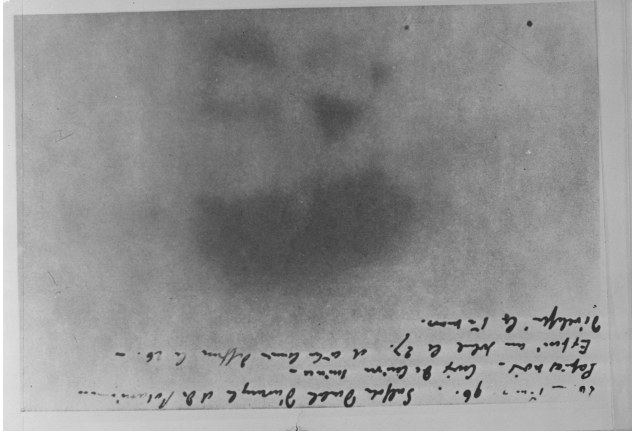 96. Sulfate Double d'Uranyle et de Potassium
Papier noir. Croix de Cuivre mince -
Exposé au soleil le 27. et à la lum diffuse le 26. -
Développé le 1er mars.